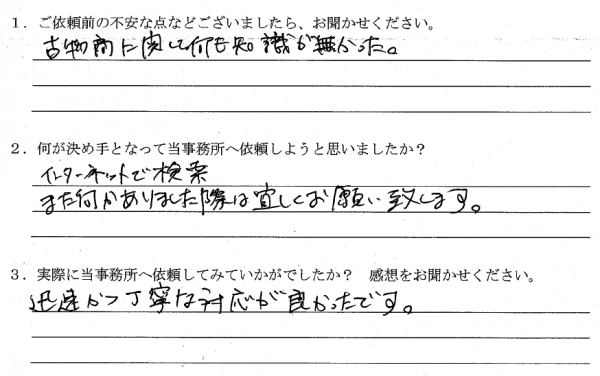 1．ご依頼前の不安な点などございましたら、お聞かせください。
古物商に関して何も知識が無かった。
2．何が決め手となって当事務所へ依頼しようと思いましたか？
インターネットで検索
また何かありました際は宜しくお願い致します。
3．実際に当事務所へ依頼してみていかがでしたか？　感想をお聞かせください。
迅速かつ丁寧な対応が良かったです。